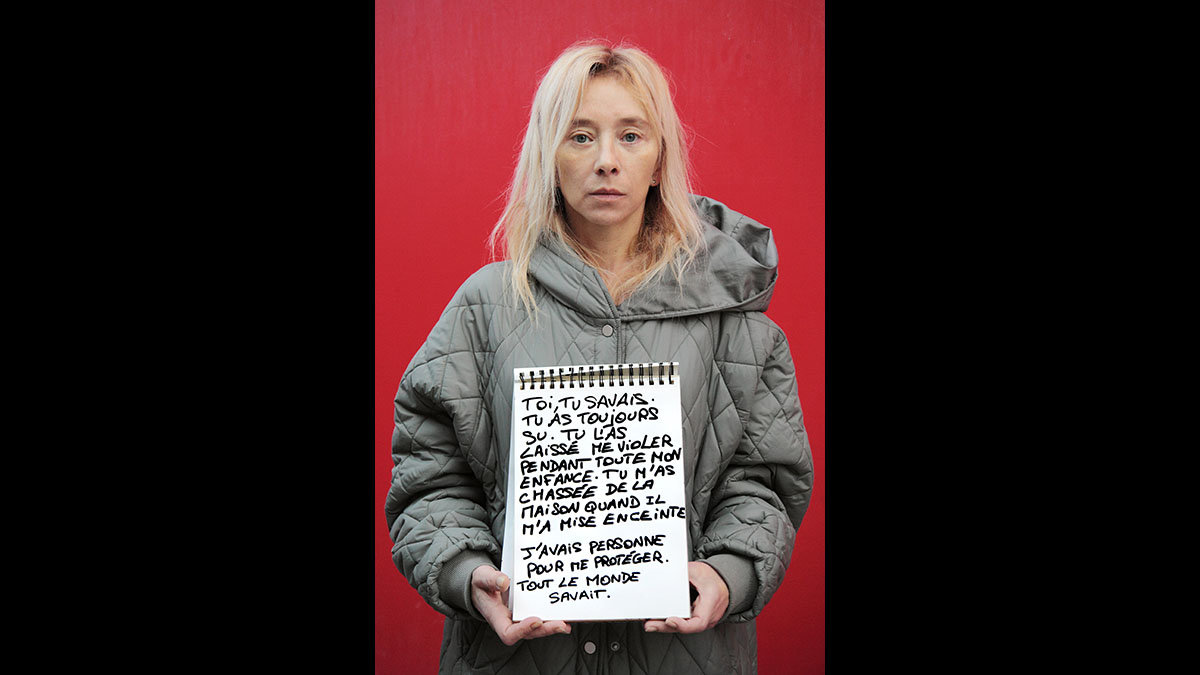 TOI, TU SAVAIS.
TU AS TOUJOURS
SU. TU L'AS
LAISSÉ ME VIOLER
PENDANT TOUTE MON
ENFANCE. TU M'AS
CHASSÉE DE LA
MAISON QUAND IL
M'A MISE ENCEINTE
J'AVAIS PERSONNE
POUR ME PROTÉGER.
TOUT LE MONDE
SAVAIT.